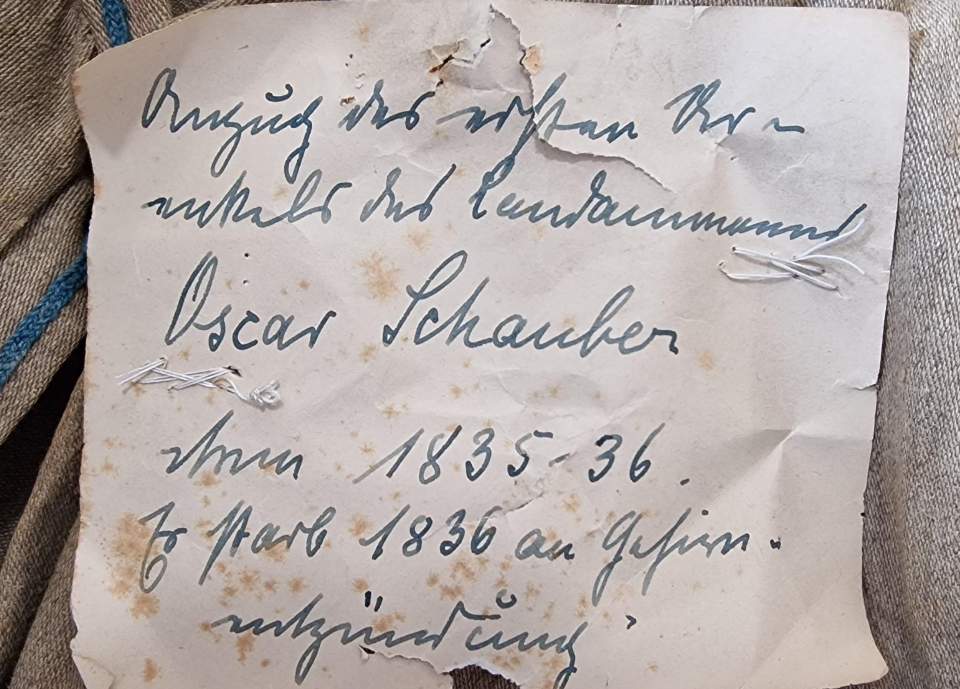 Anzug des ersten Ur-
enkels des Landammanns
Oscar Schauber
1835-36.
Er starb 1836 an Gehirn-
entzündung